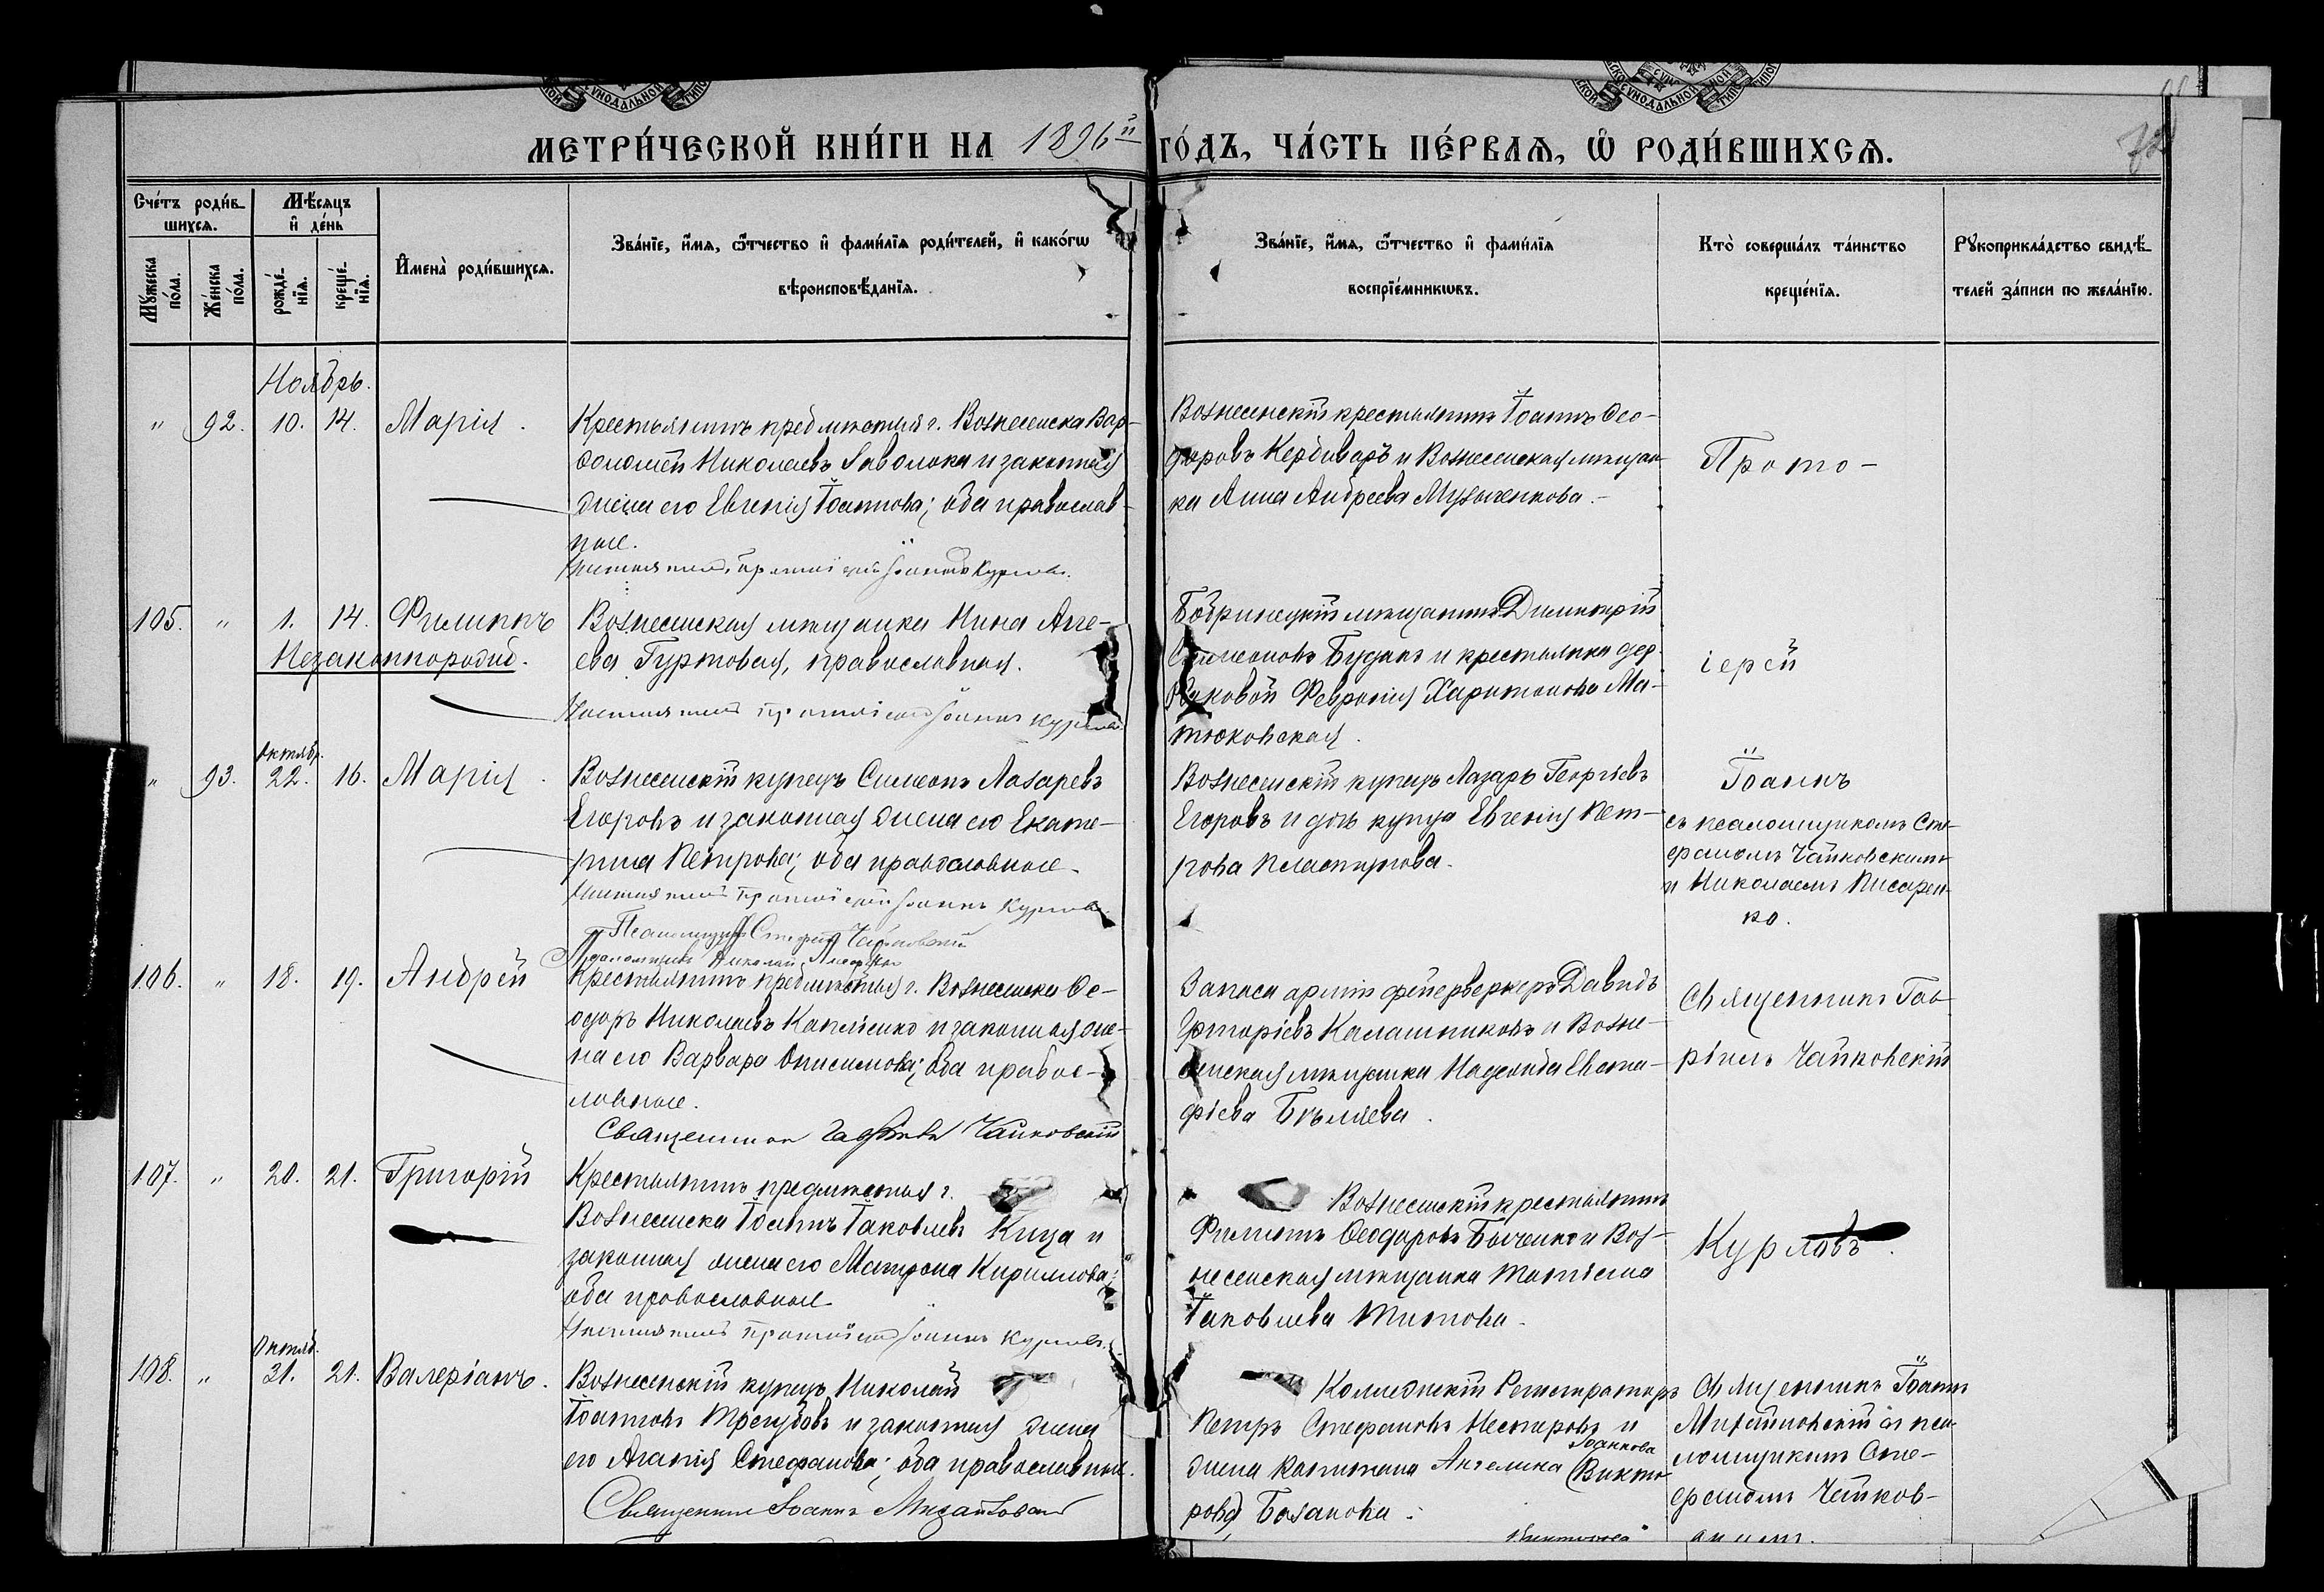 МЕТРИ́ЧЕСКОЙ КНИ́ГИ НА 1896й ГО́ДЪ, ЧА́СТЬ ПЕ́РВАЯ, Ѡ РОДИ́ВШИХСЯ.
Сче́тъ роди́в-
шихся.
Мѣ́сяцъ
и де́нь
Мꙋжеска по́ла.
Же́нска по́ла.
рожде́-
нїя.
креще́-
нїя.
Имена̀ роди́вшихся.
Зва́нїе, и́мя, ѻ́тчество и фами́лїя роди́телей, и како́гѡ
вѣроисповѣ́данїя.
Зва́нїе, и́мя, ѻ́тчество и фами́лїя
воспрїе́мникѡвъ.
Кто̀ соверша́лъ та́инство
креще́нїя.
Рꙋкоприкла́дство свидѣ́-
телей за́писи по жела́нїю.
Ноябрь.
" 92. 10. 14. Марія.
Крестьянинъ предмѣстья г. Вознесенска Вар-
ѳоломей Николаевъ Заволока и законная
жена его Евгенія Іоаннова; оба православ-
ные.
Настоятель, протоіерей Іоаннъ Курловъ.
Вознесенскій крестьянинъ Іоаннъ Ѳео-
доровъ Кердиваръ и Вознесенская мѣщан-
ка Анна Андреева Музыченкова.
Прото-
105. " 1. 14. Филиппъ
Незаконнорожд.
Вознесенская мѣщанка Нина Агге-
ева Гуртовая, православная.
Настоятель протоіерей Іоаннъ Курловъ
Бобринецкій мѣщанинъ Димитрій
Симеоновъ Будакъ и крестьянка дер.
Февронія Харитонова Ма-
тюковская.
іерей
" 93. Октябр. 22. 16. Марія.
Вознесенскій купецъ Симеонъ Лазаревъ
Егоровъ и законная жена его Екате-
рина Петрова; оба православные.
Настоятель протоіерей Іоаннъ Курловъ
Псаломщикъ Стефанъ Чайковскій
Псаломщикъ Николай Писаренко
Вознесенскій купецъ Лазарь Георгіевъ
Егоровъ и дочь купца Евгенія Пет-
рова Пластунова.
Іоаннъ
съ псаломщикомъ Сте-
фаномъ Чайковскимъ
и Николаемъ Писарен-
ко.
106. " 18. 19. Андрей
Крестьянинъ предмѣстья г. Вознесенска Ѳе-
одоръ Николаевъ Каплѣенко и законная же-
на его Варвара Онисимова; оба правос-
лавные.
Священникъ Гавріилъ Чайковскій
Запаса арміи фейерверкеръ Давидъ
Григоріевъ Калашниковъ и Возне-
сенская мѣщанка Надежда Евста-
фіева Бѣляева.
Священникъ Гав-
ріилъ Чайковскій
107. " 20. 21. Григорій
Крестьянинъ предмѣстья г.
Вознесенска Іоаннъ Іаковлевъ Кица и
законная жена его Матрона Кириллова;
оба православные
Настоятель протоіерей Іоаннъ Курловъ.
Вознесенскій крестьянинъ
Филиппъ Ѳеодоровъ Быченко и Воз-
несенская мѣщанка Татіана
Іаковлева Титова.
Курловъ.
108. " Октяб. 31. 21. Валеріанъ.
Вознесенскій купецъ Николай
Іоанновъ Трегубовъ и законная жена
его Агапія Стефанова; оба православные.
Священникъ Іоаннъ Михайловскій
Коллежскій Регистраторъ
Петръ Стефановъ Нестеровъ и
Іоаннова
жена капитана Ангелина (Викто-
рова) Базанова.
Священникъ Іоаннъ
Михайловскій съ пса-
ломщикомъ Сте-
фаномъ Чайков-
скимъ.